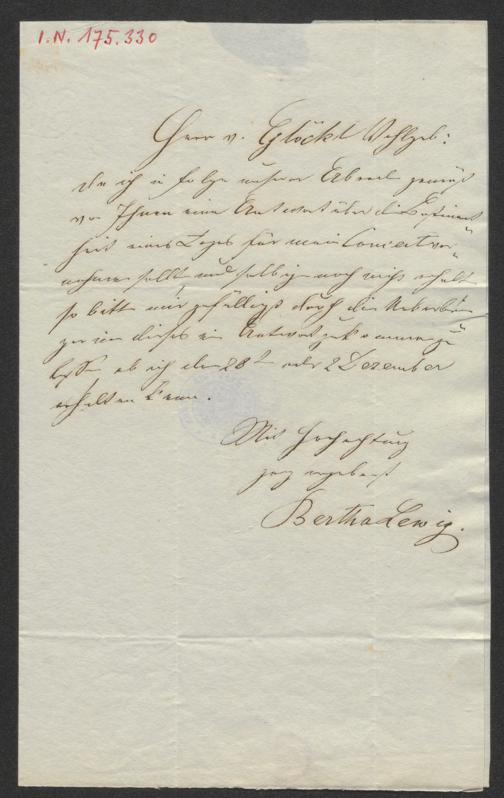 I.N. 175.330
Herr v. Glöckl Wohlgeb:
Da ich in Folge unserer Abrede gemäß
von Ihnen eine Antwort über die
heit eines Tages für mein Concert ver-
nehmen sollte und selbige noch nicht erhalten
so bitte mir gefälligst durch die Ueberbrin-
gerin dieses ein Antwort zukommen zu
lassen ob ich den 28t oder 2 Dezember
erhalten kann.
Mit Hochachtung
ganz ergebenst
Bertha Lewig.